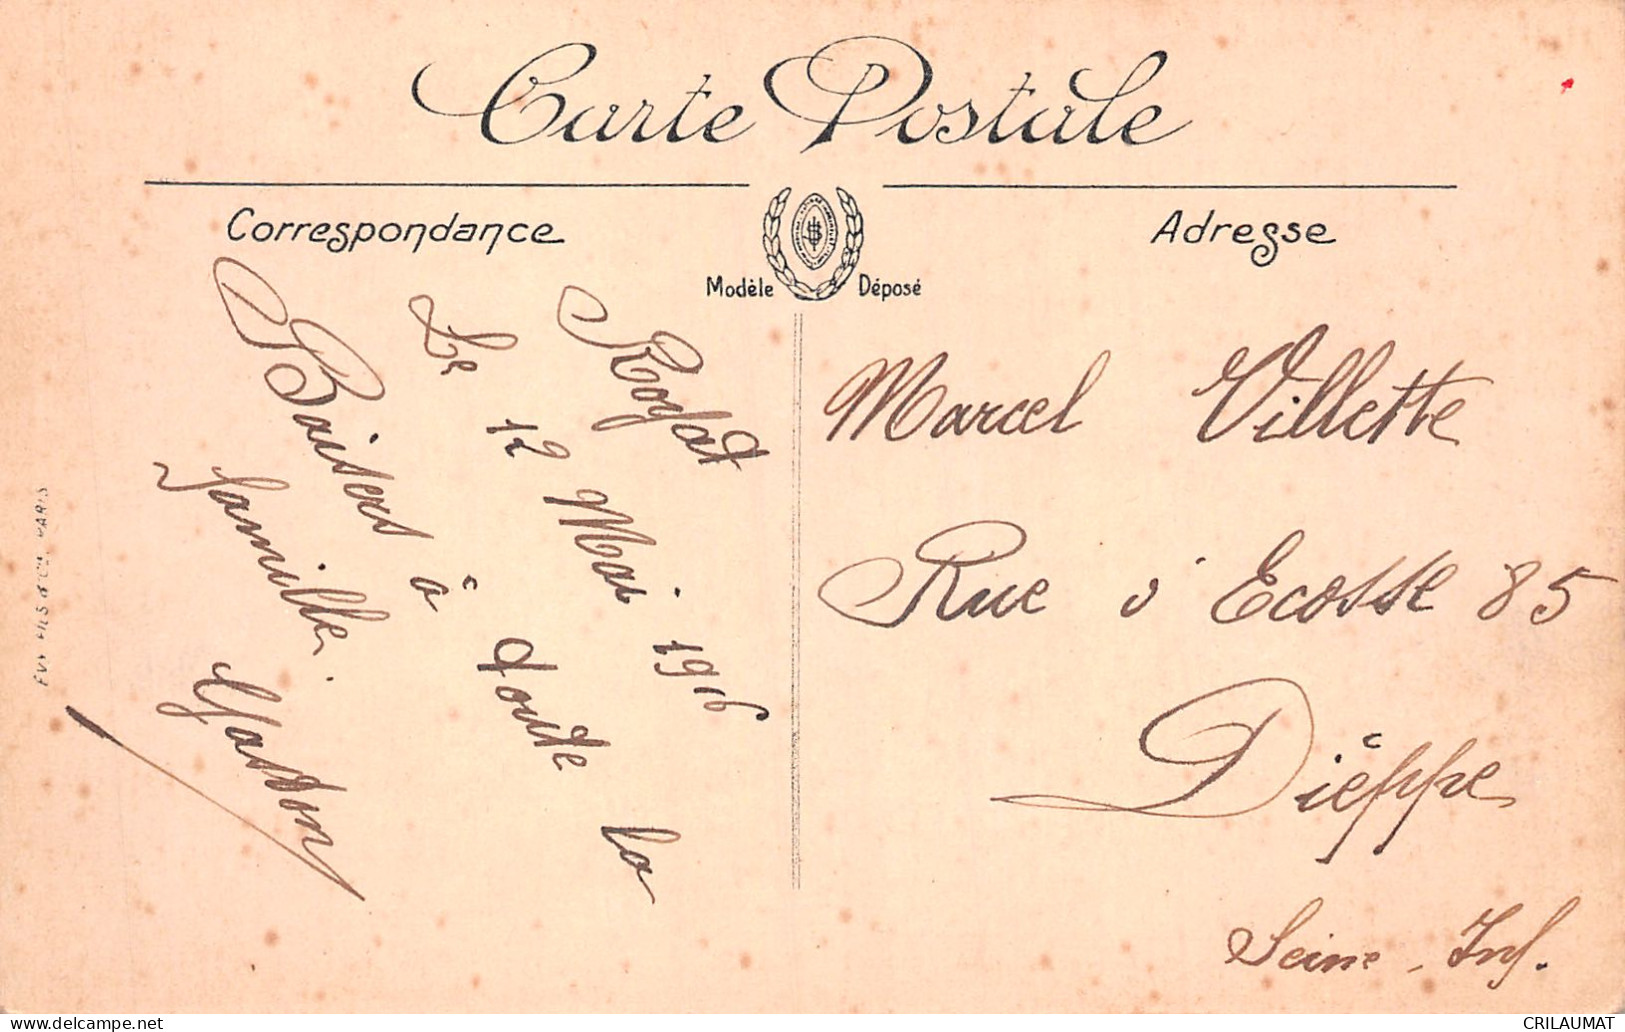 Carte Postale
Correspondance
Adresse
Modèle Déposé
Royat
Le 12 Mai 1916
Baisers à toute la
famille.
Gaston
Marcel Villette
Rue d'Ecosse 85
Dièppe
Seine-Inf.
FILS & Cie PARIS
delcampe.net
CRILAUMAT